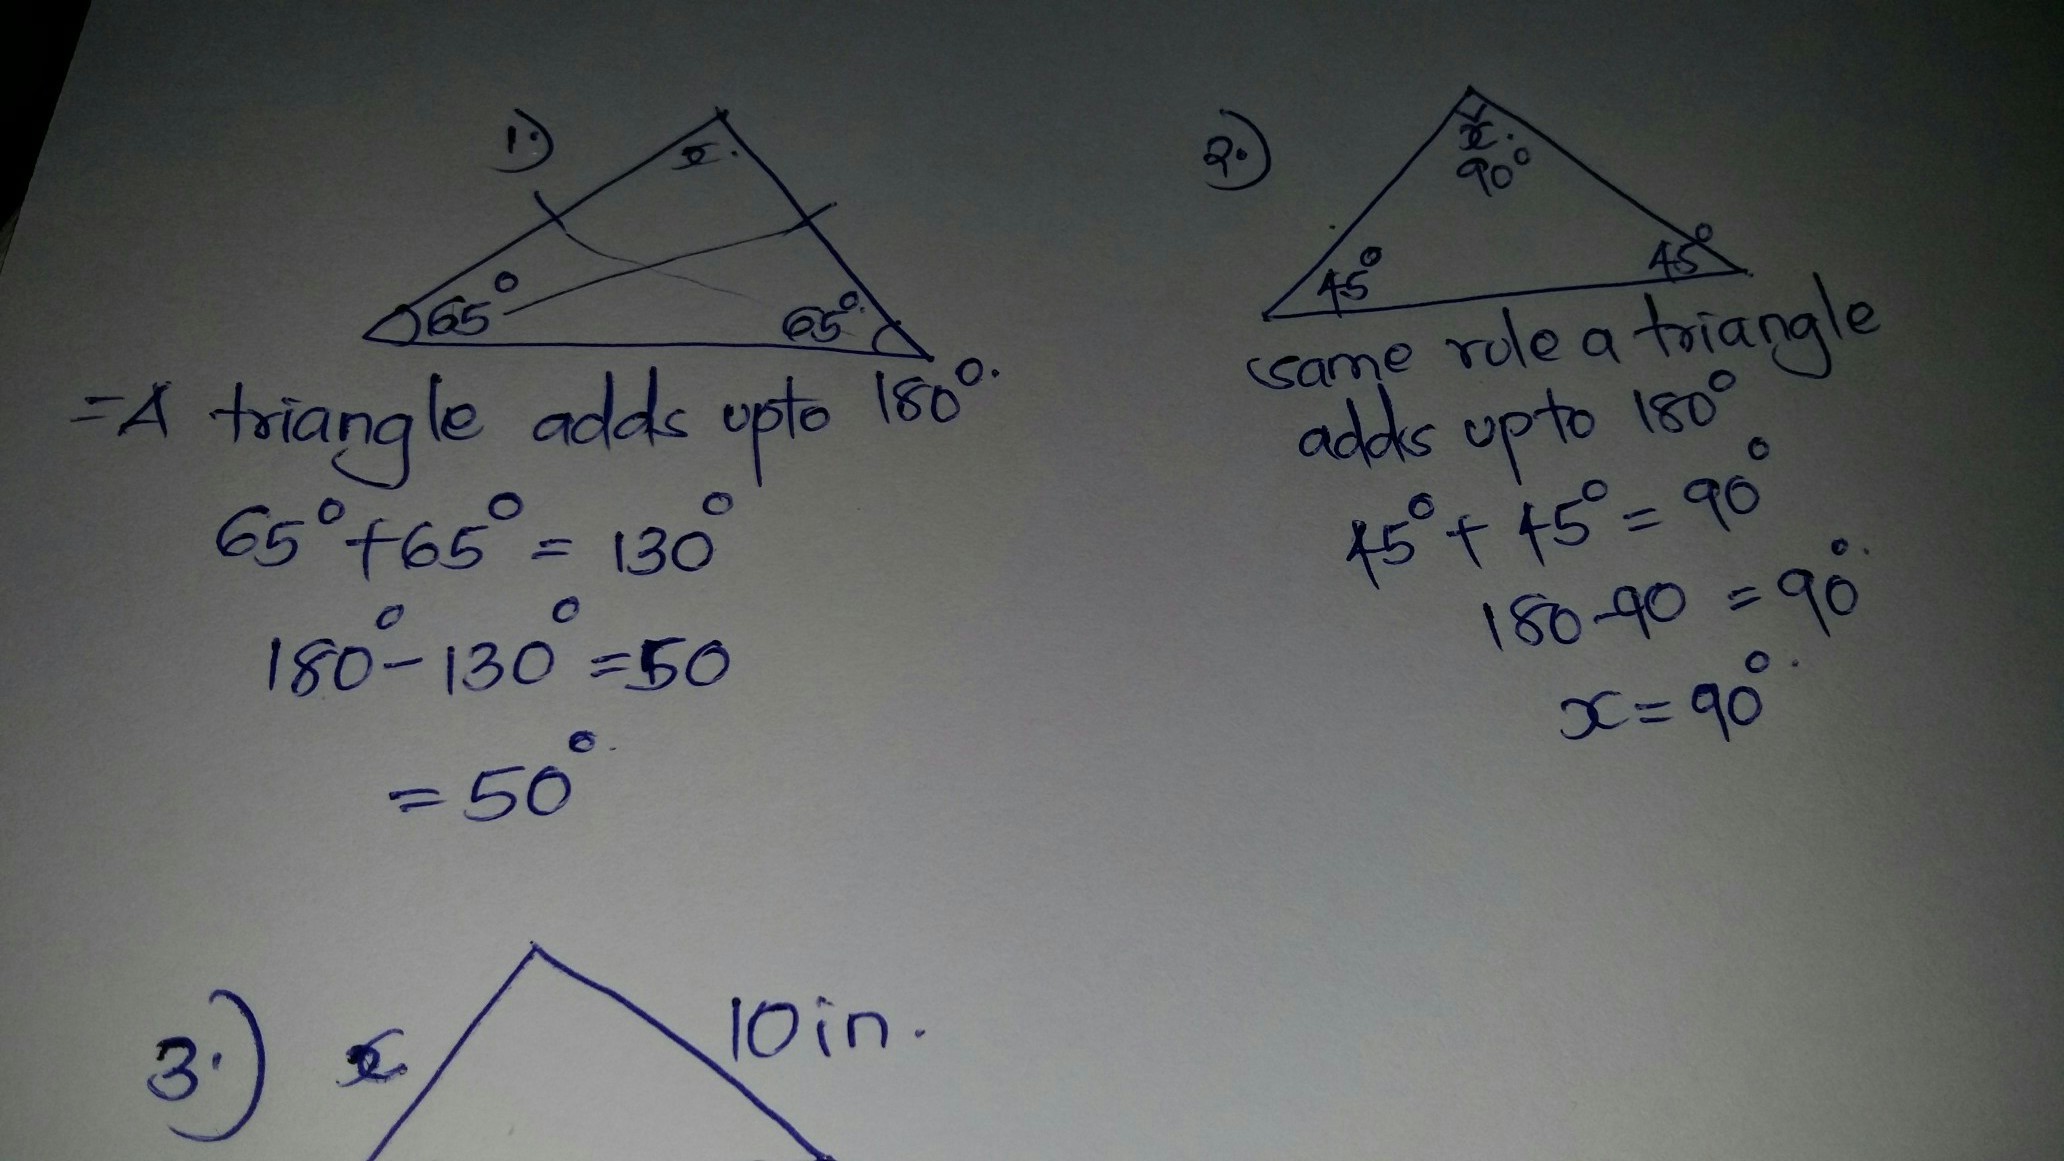 1.)
x.
65°
65°.
=A triangle adds upto 180°.
65°+65° = 130°
180°-130° =50
= 50°.
2.)
x.
90°
45°
45°
same rule a triangle
adds upto 180°
45°+45°=90°
180-90 =90°.
x=90°.
3.)
x
10in.